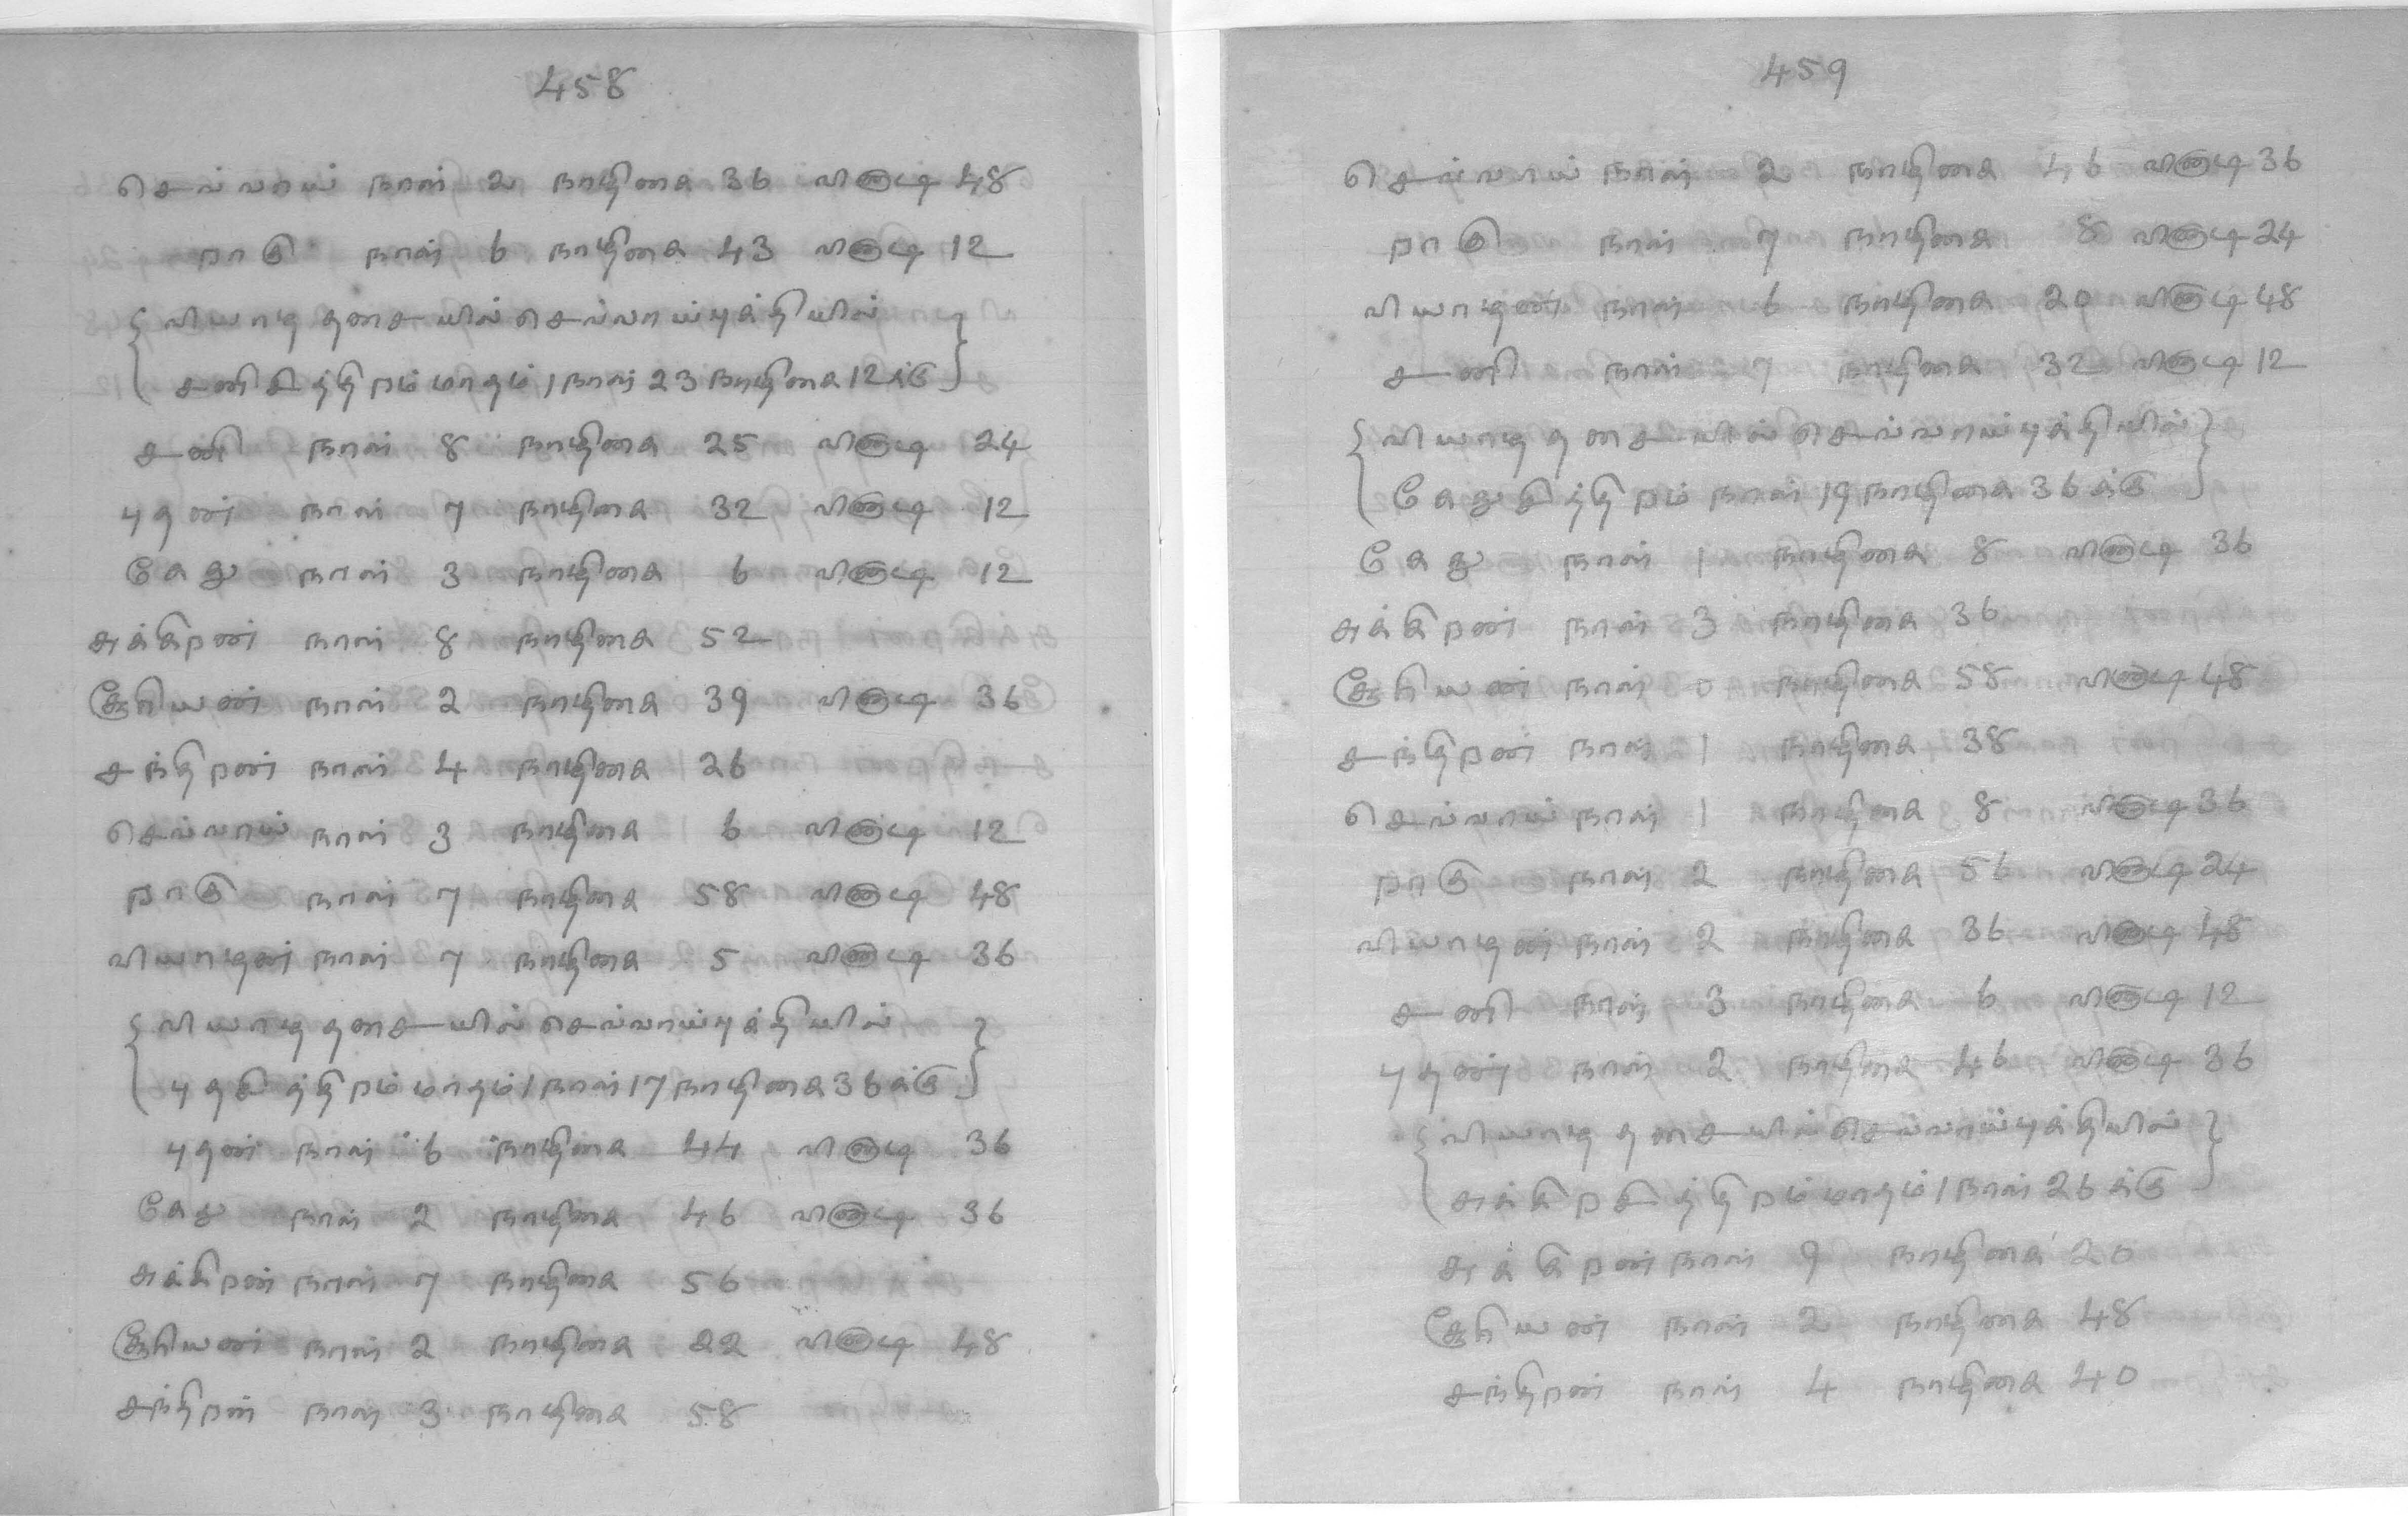 458
செவ்வாய் நாள் 2 நாழிகை 36 வினாடி 48
ராகு நாள் 6 நாழிகை 43 வினாடி 12
{ வியாழ தசையில் செவ்வாய்புக்தியில்
சனிசித்திரம் மாதம் 1 நாள் 23 நாழிகை 12க்கு }
சனி நாள் 8 நாழிகை 25 வினாடி 24
புதன் நாள் 7 நாழிகை 32 வினாடி 12
கேது நாள் 3 நாழிகை 6 வினாடி 12
சுக்கிரன் நாள் 8 நாழிகை 52
சூரியன் நாள் 2 நாழிகை 39 வினாடி 36
சந்திரன் நாள் 4 நாழிகை 26
செவ்வாய் நாள் 3 நாழிகை 6 வினாடி 12
ராகு நாள் 7 நாழிகை 58 வினாடி 48
வியாழன் நாள் 7 நாழிகை 5 வினாடி 36
{ வியாழ தசையில் செவ்வாய்புக்தியில்
புதசித்திரம் மாதம் 1 நாள் 17 நாழிகை 36க்கு }
புதன் நாள் 6 நாழிகை 44 வினாடி 36
கேது நாள் 2 நாழிகை 46 வினாடி 36
சுக்கிரன் நாள் 7 நாழிகை 56
சூரியன் நாள் 2 நாழிகை 22 வினாடி 48
சந்திரன் நாள் 3 நாழிகை 58
459
செவ்வாய் நாள் 2 நாழிகை 46 வினாடி 36
ராகு நாள் 7 நாழிகை 8 வினாடி 24
வியாழன் நாள் 6 நாழிகை 20 வினாடி 48
சனி நாள் 7 நாழிகை 32 வினாடி 12
{ வியாழ தசையில் செவ்வாய்புக்தியில்
கேதுசித்திரம் நாள் 19 நாழிகை 36க்கு }
கேது நாள் 1 நாழிகை 8 வினாடி 36
சுக்கிரன் நாள் 3 நாழிகை 36
சூரியன் நாள் 0 நாழிகை 58 வினாடி 48
சந்திரன் நாள் 1 நாழிகை 38
செவ்வாய் நாள் 1 நாழிகை 8 வினாடி 36
ராகு நாள் 2 நாழிகை 56 வினாடி 24
வியாழன் நாள் 2 நாழிகை 36 வினாடி 48
சனி நாள் 3 நாழிகை 6 வினாடி 12
புதன் நாள் 2 நாழிகை 46 வினாடி 36
{ வியாழ தசையில் செவ்வாய்புக்தியில்
சுக்கிரசித்திரம் மாதம் 1 நாள் 26க்கு }
சுக்கிரன் நாள் 9 நாழிகை 20
சூரியன் நாள் 2 நாழிகை 48
சந்திரன் நாள் 4 நாழிகை 40